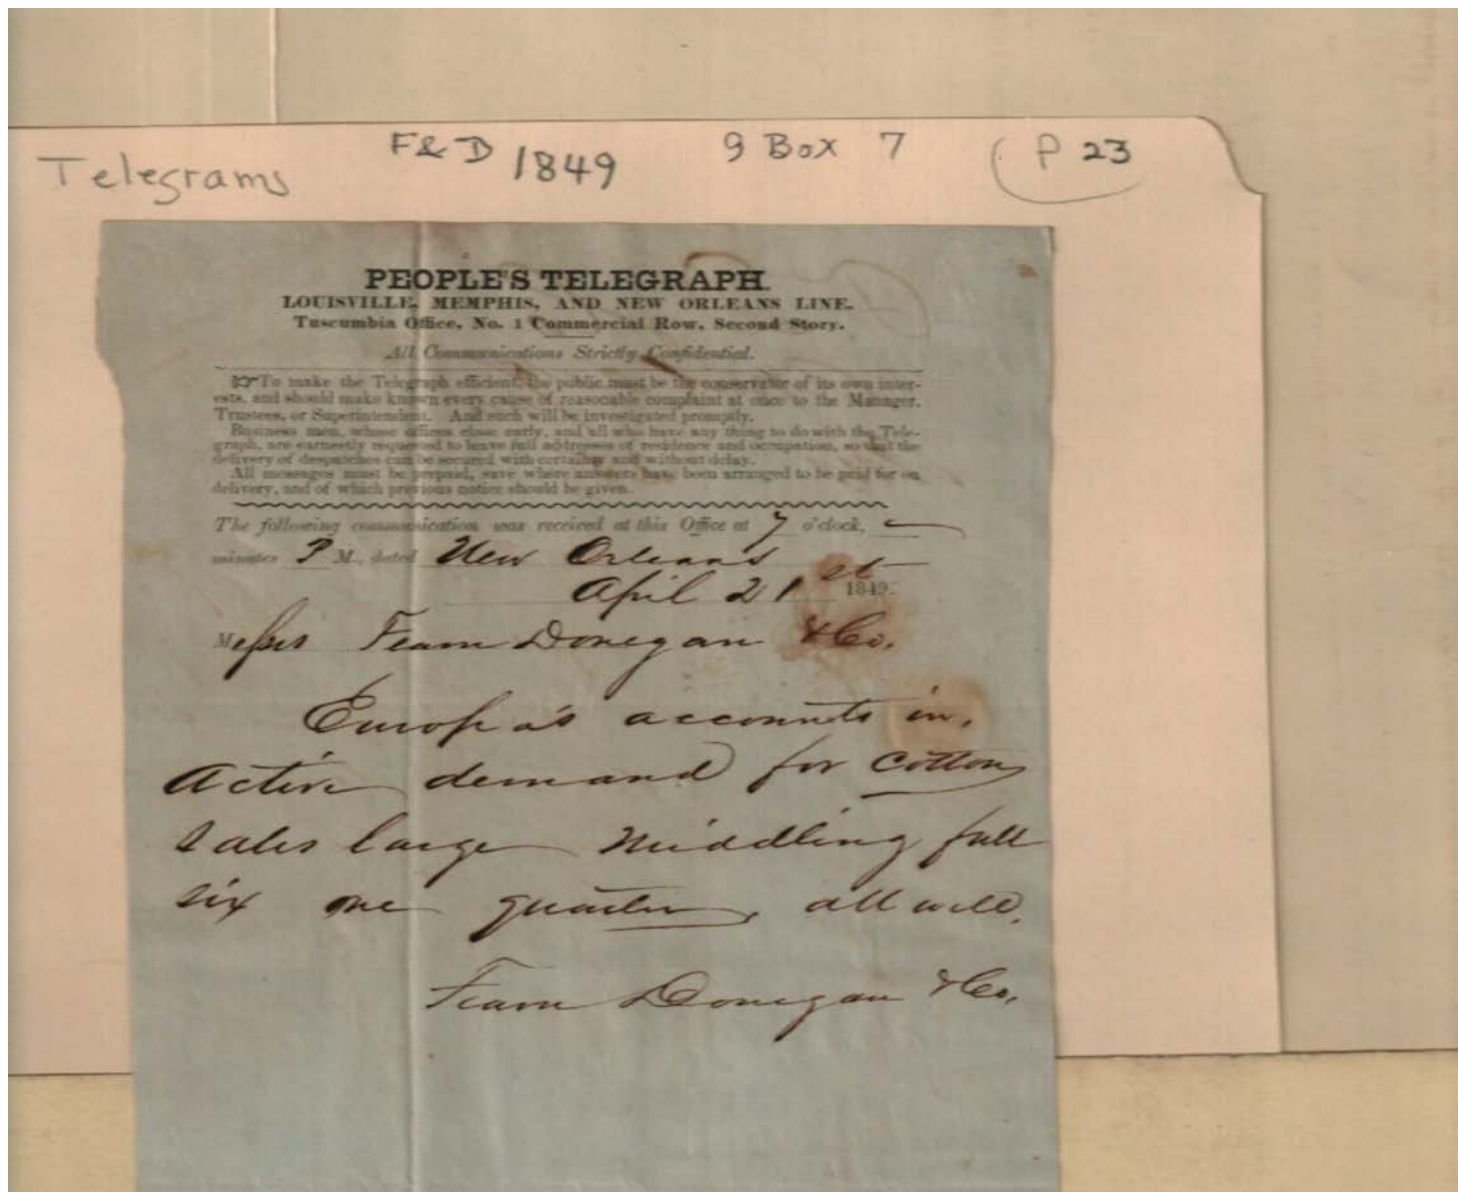 Telegrams F&D 1849 9 Box 7 P 23
PEOPLE'S TELEGRAPH.
LOUISVILLE, MEMPHIS, AND NEW ORLEANS LINE.
Tuscumbia Office, No. 1 Commercial Row, Second Story.
All Communications Strictly Confidential.
☞To make the Telegraph efficient, the public must be the conservator of its own inter-
ests, and should make known every cause of reasonable complaint at once to the Manager,
Trustees, or Superintendent. And such will be investigated promptly.
Business men, whose offices close early, and all who have any thing to do with the Tele-
graph, are earnestly requested to leave full addresses of residence and occupation, so that the
delivery of despatches can be secured with certainty and without delay.
All messages must be prepaid, save where answers have been arranged to be paid for on
delivery, and of which previous notice should be given.
The following communication was received at this Office at 7 o'clock, —
minutes P M., dated New Orleans
April 21 st 1849.
Messrs Fearn Donegan & Co.
Europa's accounts in.
Active demand for Cotton
Sales large Middling full
six one quarter, all well.
Fearn Donegan & Co.